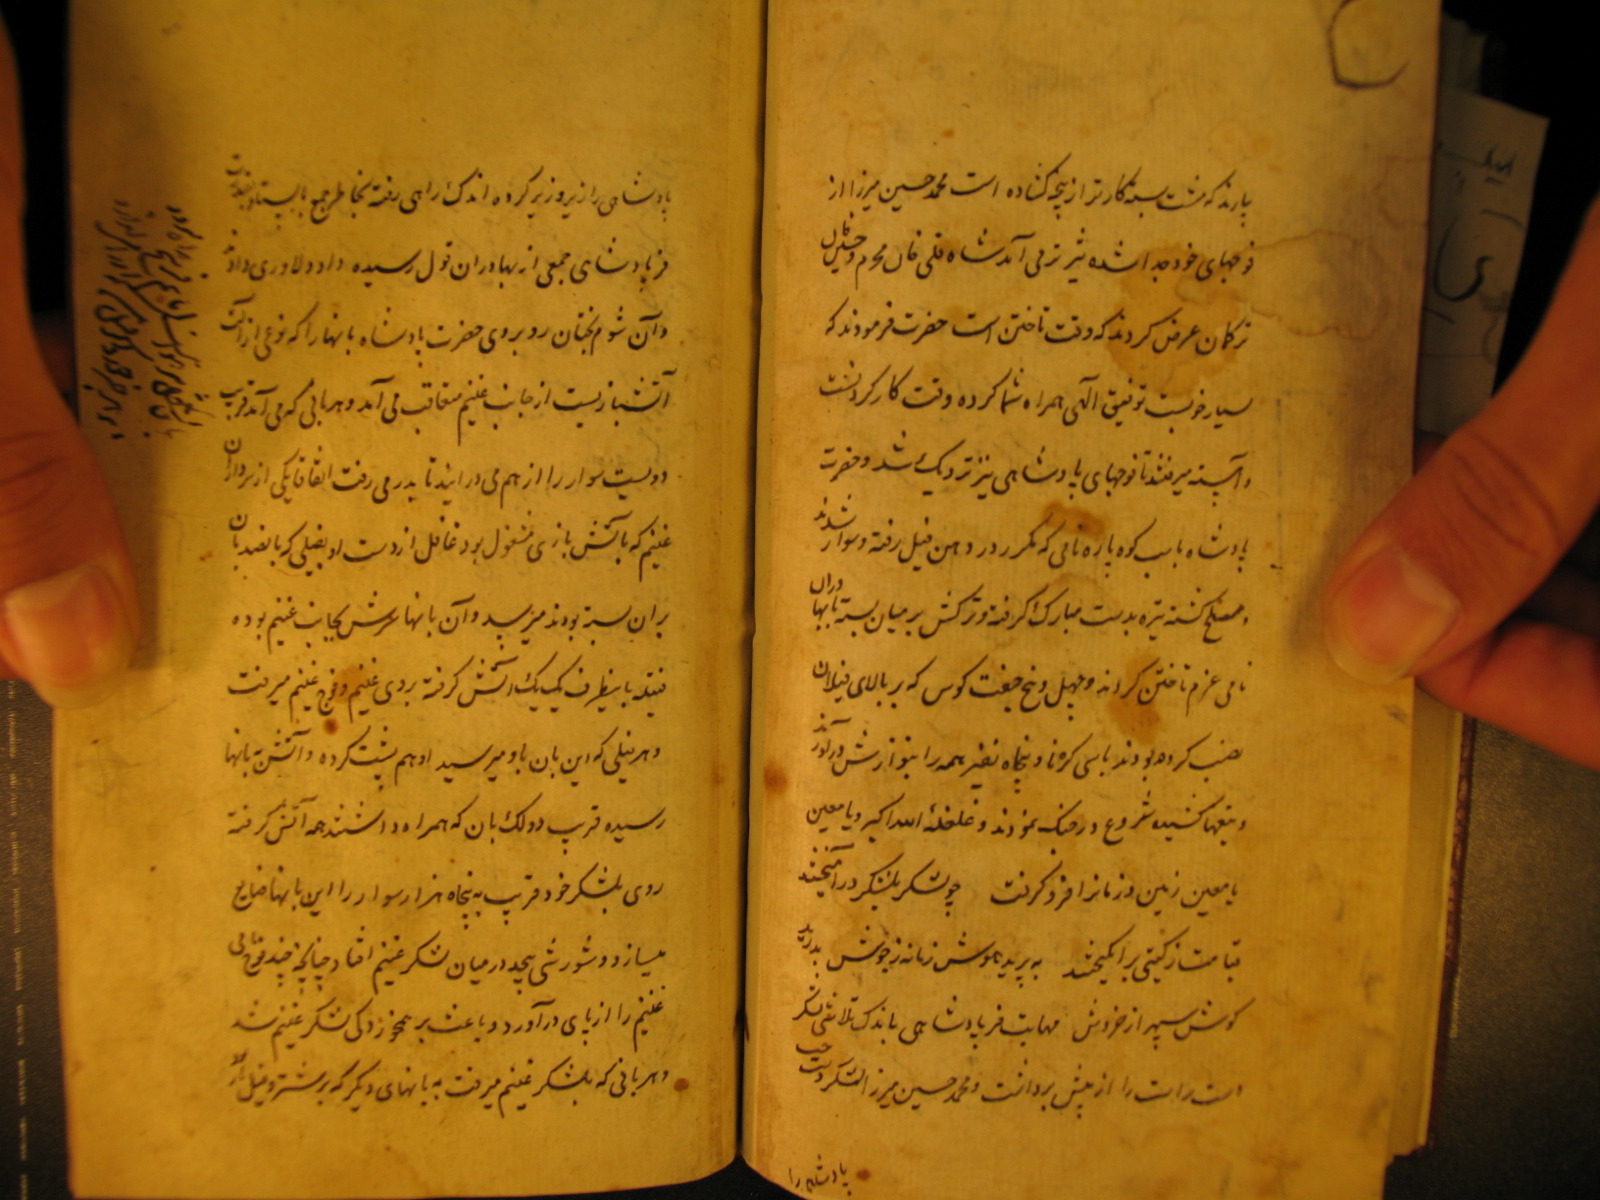 یارند که مشت بسته کارتر از پنجه کشاده است محمد حسین میرزا از
فوجهای خود جدا شده تیزتر می آمد شاه قلی خان محرم و حسین خان
ترکمان عرض کردند که وقت تاختن است حضرت فرمودند که
بسیار خوبست توفیق الهی همراه شما کرده وقت کار کردنست
و آهسته میرفتند تا فوجهای پادشاهی نیز نزدیک شد و حضرت
پادشاه با سب کوه پاره نامی که مکرر در دهن فیل رفته و سوار شدند
و مصلح گشته نیزه بدست مبارک گرفته و ترکش بر میان بسته دران
نامی عزم تاختن کردند و چهل و پنج جفت کوس که بر بالای فیلان
نصب کرده بودند با سی کرنا و پنجاه نفیر همه را بنوازش در آوردند
و تیغها کشیده شروع در جنگ نمودند و غلغلهٔ الله اکبر و یا معین
یا معین زمین و زمانرا فرو گرفت چو لشکر بلشکر در آمیختند
قیامت ز گیتی بر انگیختند به پرید هوش زمانه ز جوش بدرید
کوش سپهر از خروش مهابت فر پادشاهی باندک تلاشی لشکر
دست راست را از پیش برداشت و محمد حسین میرزا لشکر دست چپ
پادشاهی را
پادشاهی را زیر و زبر کرده اندک راهی رفته بخاطر جمع بایستاد
فر پادشاهی جمعی از بهادران قول رسیده داد دلاوری دادند
و آن شوم بختان رو بروی حضرت پادشاه بانها را که نوعی از آلت
آتشبازیست از جانب غنیم متعاقب می آمد و هر بانی که می آمد قریب
دویست سوار را از هم می درانید تا بدر می رفت اتفاقا یکی از سرداران
غنیم که بآتش بازی مشغول بود غافل از دست او بفیلی که پانصد بان
بران بسته بودند میرسید و آن بانها سرش بجانب غنیم بوده
فتیله بانیطرف یک یک آتش گرفته بروی غنیم و فوج غنیم میرفت
و هر فیلی که این بان باو میرسید او هم پشت کرده و آتش بانها
رسیده قریب دو لک بان که همراه داشتند همه آتش گرفته
روی بلشکر خود قریب به پنجاه هزار سوار را این بانها ضایع
میسازد و شورشی بیحد در میان لشکر غنیم افتاد چنانچه چند فوج نامی
غنیم را از پای در آورد و باعث بر هم خوردگی لشکر غنیم شد
و هر بانی که بلشکر غنیم میرفت به بانهای دیگر که بر شتر و فیل